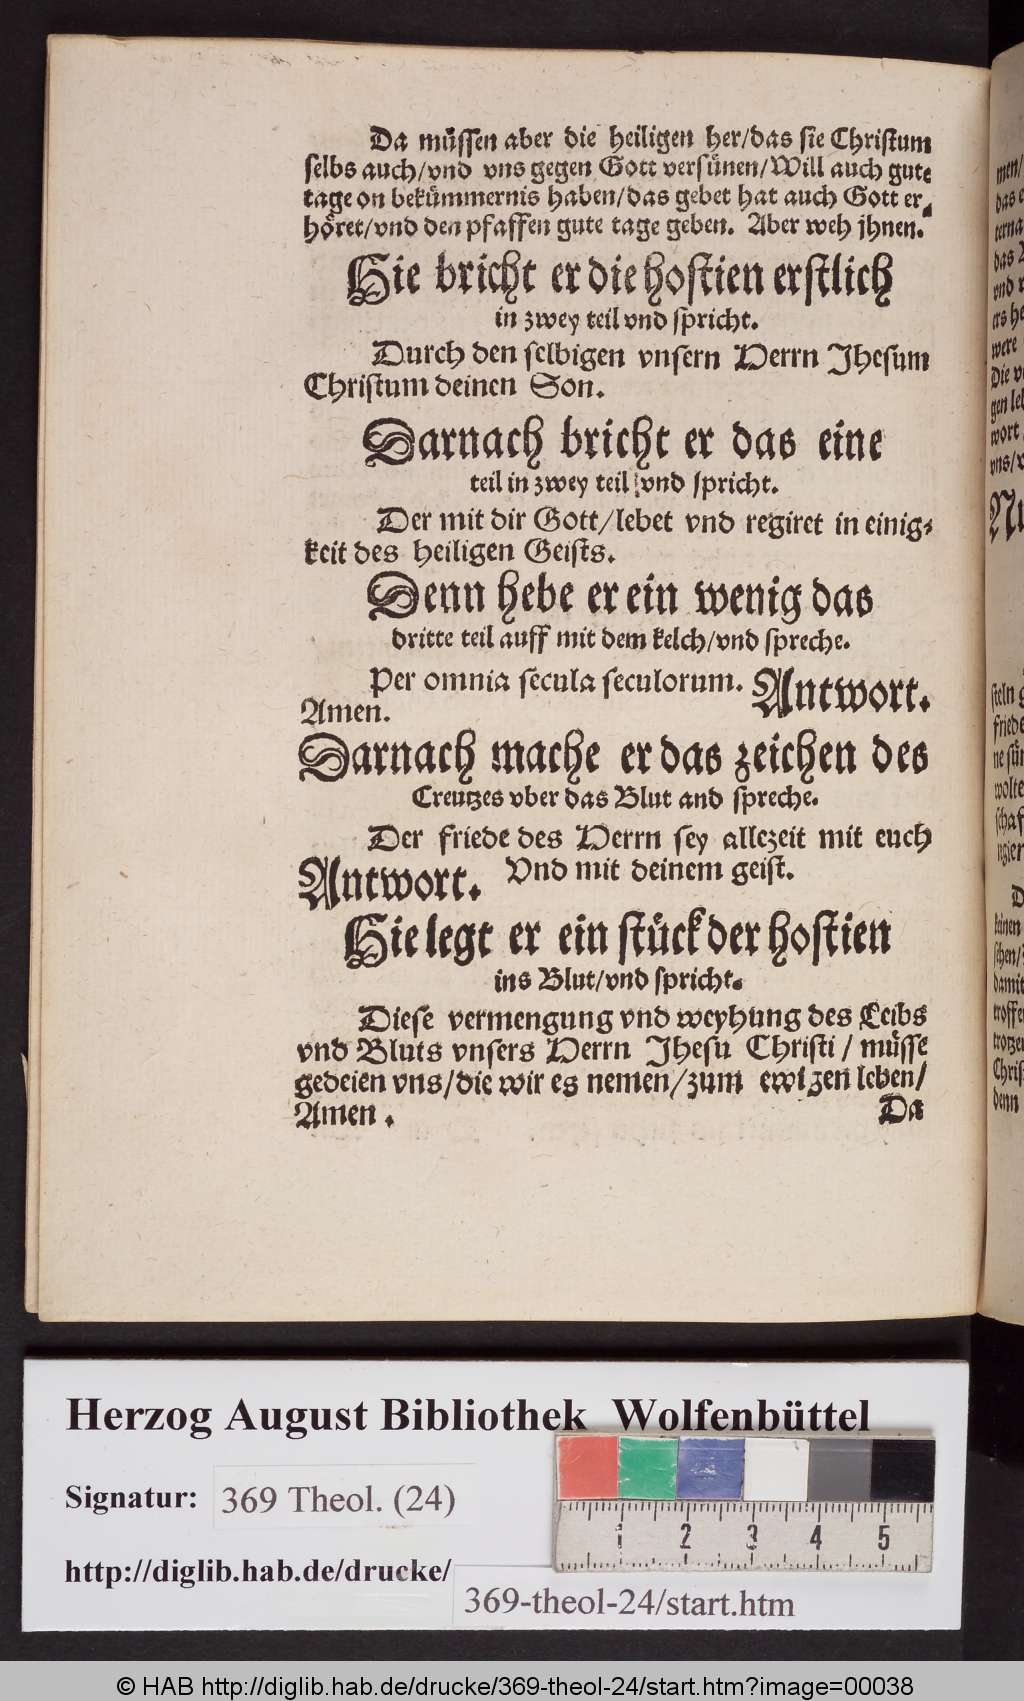 Da müssen aber die heiligen her/das sie Christum
selbs auch/vnd vns gegen Gott versünen/Will auch gute
tage on bekümmernis haben/das gebet hat auch Gott er⸗
höret/vnd den pfaffen gute tage geben. Aber weh jhnen.
Hie bricht er die hostien erstlich
in zwey teil vnd spricht.
Durch den selbigen vnsern Herrn Jhesum
Christum deinen Son.
Darnach bricht er das eine
teil in zwey teil vnd spricht.
Der mit dir Gott/lebet vnd regiret in einig⸗
keit des heiligen Geists.
Denn hebe er ein wenig das
dritte teil auff mit dem kelch/vnd spreche.
Per omnia secula seculorum. Antwort.
Amen.
Darnach mache er das zeichen des
Creutzes vber das Blut and spreche.
Der friede des Herrn sey allezeit mit euch
Antwort. Vnd mit deinem geist.
Hie legt er ein stück der hostien
ins Blut/vnd spricht.
Diese vermengung vnd weyhung des Leibs
vnd Bluts vnsers Herrn Jhesu Christi / müsse
gedeien vns/die wir es nemen/zum ewigen leben/
Amen.
Da
men/
das
vnd
ers
were
Die
wort
vns/
Nu
steln
friede
wolte
Herzog August Bibliothek Wolfenbüttel
Signatur: 369 Theol. (24)
http://diglib.hab.de/drucke/
369-theol-24/start.htm
1 2 3 4 5
© HAB http://diglib.hab.de/drucke/369-theol-24/start.htm?image=00038